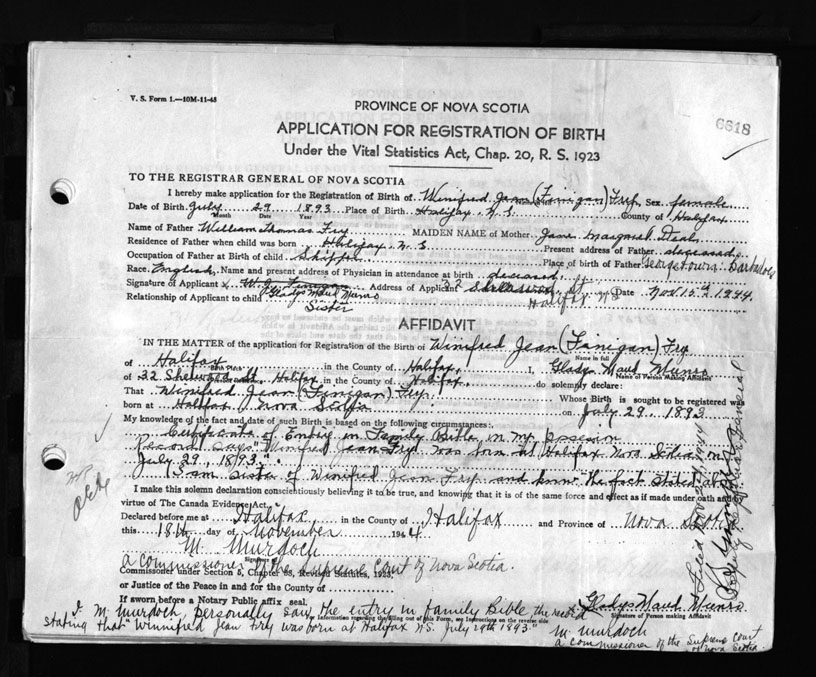 V. S. Form 1.—10M-11-43
PROVINCE OF NOVA SCOTIA
6618
APPLICATION FOR REGISTRATION OF BIRTH
Under the Vital Statistics Act, Chap. 20, R. S. 1923
TO THE REGISTRAR GENERAL OF NOVA SCOTIA
I hereby make application for the Registration of Birth of Winifred Jean (Finigan) Fry Sex female
Date of Birth July 29 1893 Place of Birth Halifax N. S. County of Halifax
Month Date Year
Name of Father William Thomas Fry MAIDEN NAME of Mother Jane Margaret
Residence of Father when child was born Halifax N. S. Present address of Father deceased
Occupation of Father at Birth of Child Place of birth of Father Georgetown Barbados
Race English Name and present address of Physician in attendance at birth deceased
Signature of Applicant W. J. Finigan Address of Applicant 32 St Date Nov 15th 1944
Relationship of Applicant to child Gladys Maud Munro Halifax N S
Sister
AFFIDAVIT
IN THE MATTER of the application for Registration of the Birth of Winifred Jean (Finigan) Fry
Name in full
of Halifax in the County of Halifax, I, Gladys Maud Munro
Birth Place Name of Person Making Affidavit
of 32 St. Halifax in the County of Halifax, do solemnly declare:
That Winifred Jean (Finigan) Fry Whose Birth is sought to be registered was
born at Halifax Nova Scotia on July 29, 1893
My knowledge of the fact and date of such Birth is based on the following circumstances:
Certificate of Entry in Family Bible in my
record says "Winifred Jean Fry was born at Halifax Nova Scotia on
July 29, 1893.
I am Sister of Winifred Jean Fry and know the fact stated above
I make this solemn declaration conscientiously believing it to be true, and knowing that it is of the same force and effect as if made under oath and by
virtue of The Canada Evidence Act.
Declared before me at Halifax in the County of Halifax and Province of Nova Scotia
this 18th day of November 1944
M. Murdoch
Signature
a commissioner of the Supreme Court of Nova Scotia.
Commissioner under Section 5, Chapter 38, Revised Statutes, 1923,
or Justice of the Peace in and for the County of
If sworn before a Notary Public affix seal. Gladys Maud Munro
Signature of Person making Affidavit
I. M. Murdoch, personally saw the entry in family Bible the record
For information regarding the filling out of this Form, see Instructions on the reverse side
stating that "Winnifred Jean Fry was born at Halifax N.S. July 29th 1893."
M. Murdoch
a commissioner of the Supreme Court
of Nova Scotia